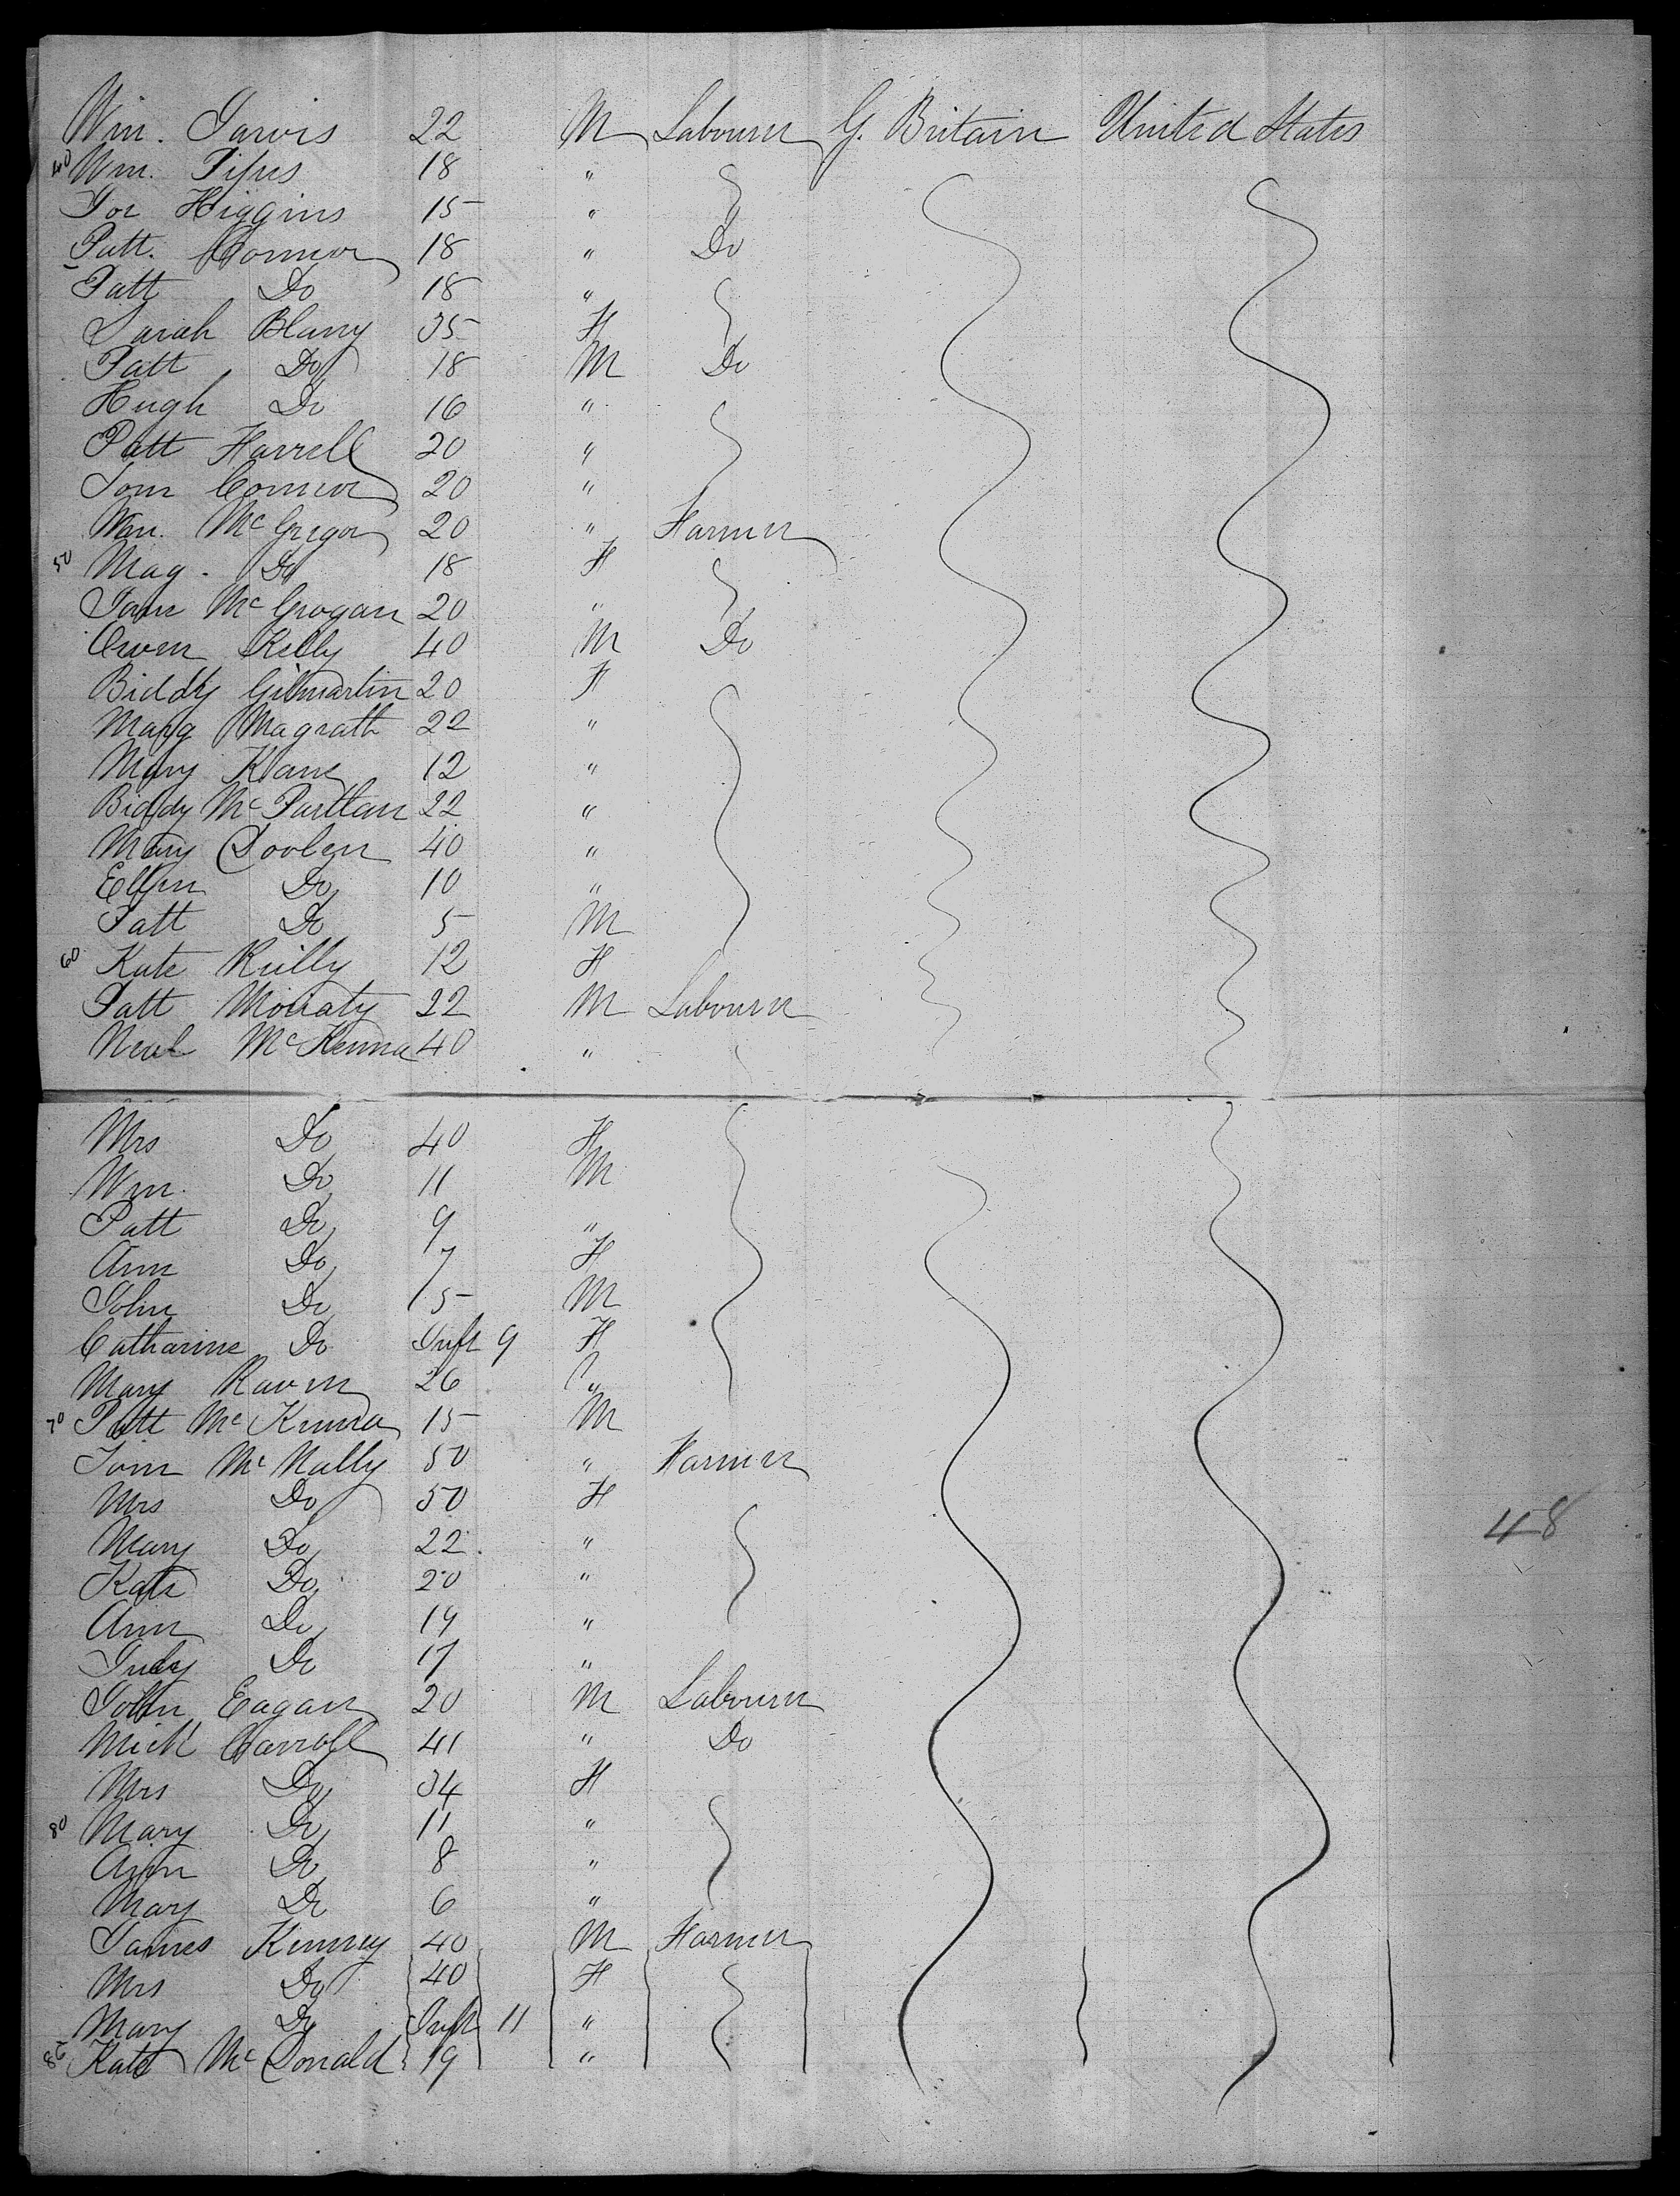 Wm. Jarvis 22 M Labourer G. Britain United States
40 Wm. 18 "
Joe Higgins 15 "
Patt. Connor 18 " Do
Patt Do 18 "
Sarah Blany 35 F
Patt Do 18 M Do
Hugh Do 16 "
Patt Farrell 20 "
Tom Connor 20 "
Wm. McGregor 20 " Farmer
50 Mag. Do 18 F
Jane McGrogan 20 "
Owen Kelly 40 M Do
Biddy Gilmartin 20 F
Marg Magrath 22 "
Mary Kane 12 "
Biddy McPartlan 22 "
Mary Doolen 40 "
Ellen Do 10 "
Patt Do 5 M
60 Kate Reilly 12 F
Patt Moriaty 22 M Labourer
Neal McKenna 40 "
Mrs Do 40 F
Wm. Do 11 M
Patt Do 9 "
Ann Do 7 F
John Do 5 M
Catharine Do Inft 9 F
Mary Raven 26 "
70 Patt McKenna 15 M
Tom McNally 50 " Farmer
Mrs Do 50 F
Mary Do 22 "
Kate Do 20 "
Ann Do 19 "
Judy Do 17 "
John Eagan 20 M Labourer
Mick Carroll 41 " Do
Mrs Do 34 F
80 Mary Do 11 "
Ann Do 8 "
Mary Do 6 "
James Kenney 40 M Farmer
Mrs Do 40 F
Mary Do Inft 11 "
86 Kate McDonald 19 "
48